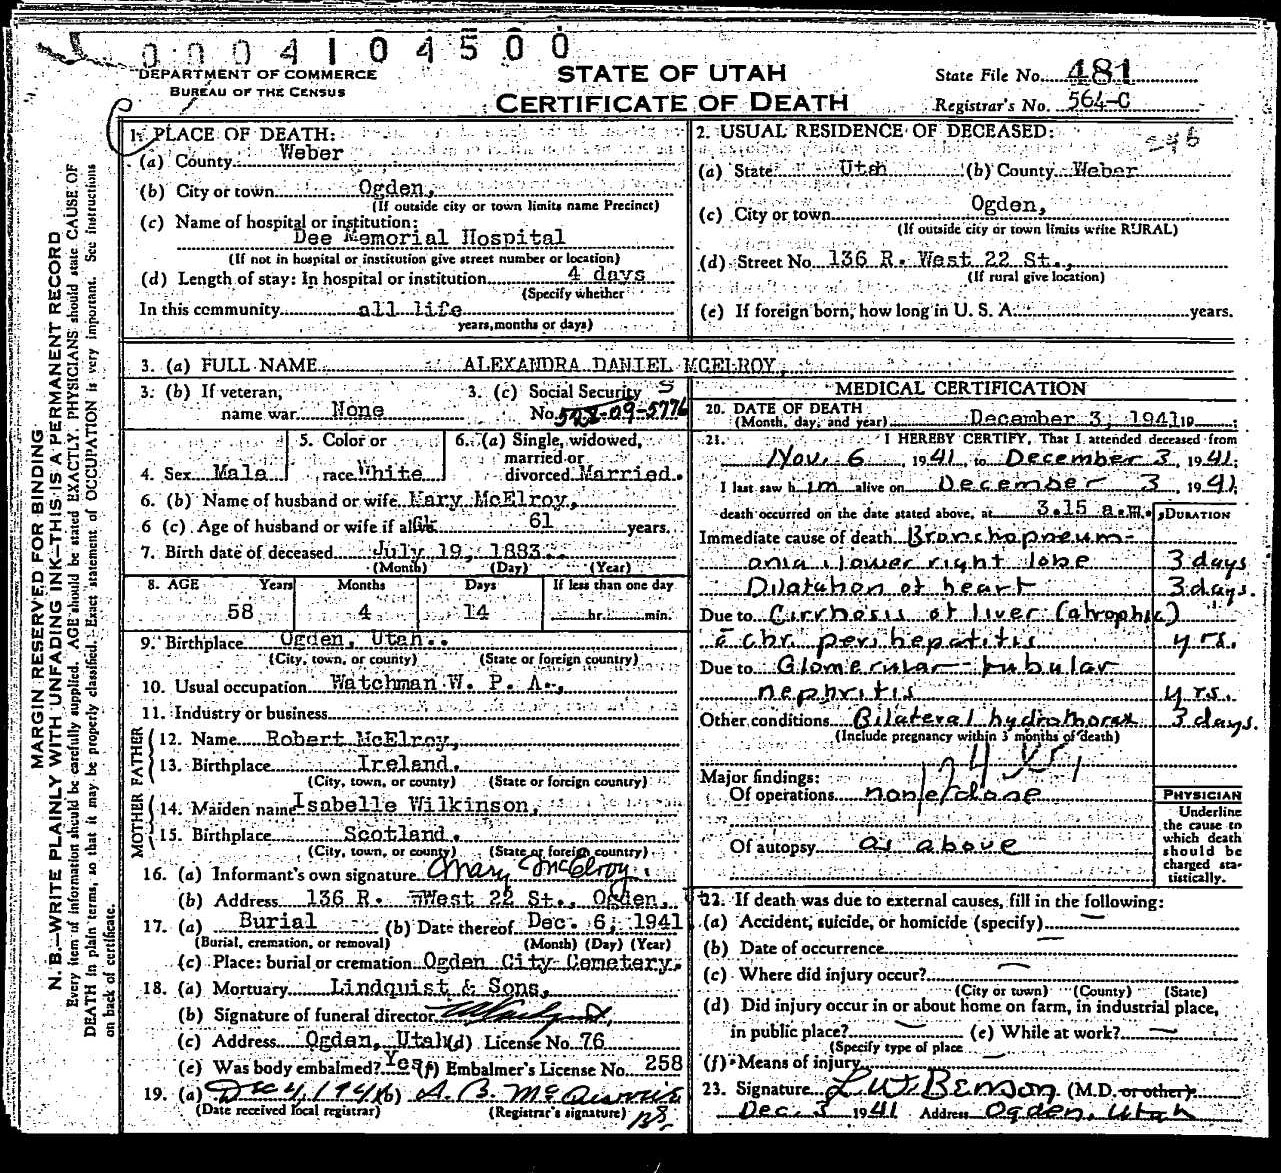 0004104500
DEPARTMENT OF COMMERCE
BUREAU OF THE CENSUS
STATE OF UTAH
CERTIFICATE OF DEATH
State File No. 481
Registrar's No. 564-C
MARGIN RESERVED FOR BINDING
N. B.—WRITE PLAINLY WITH UNFADING INK—THIS IS A PERMANENT RECORD
Every item of information should be carefully supplied. AGE should be stated EXACTLY. PHYSICIANS should state CAUSE OF
DEATH in plain terms, so that it may be properly classified. Exact statement of OCCUPATION is very important. See Instructions
on back of certificate.
1. PLACE OF DEATH:
(a) County Weber
(b) City or town Ogden,
(If outside city or town limits name Precinct)
(c) Name of hospital or institution:
Dee Memorial Hospital
(If not in hospital or institution give street number or location)
(d) Length of stay: In hospital or institution 4 days
(Specify whether
In this community all life
years, months or days)
2. USUAL RESIDENCE OF DECEASED:
246
(a) State Utah (b) County Weber
(c) City or town Ogden,
(If outside city or town limits write RURAL)
(d) Street No 136 R. West 22 St.,
(If rural give location)
(e) If foreign born, how long in U. S. A. years.
3. (a) FULL NAME ALEXANDRA DANIEL MCELROY,
3. (b) If veteran,
name war None
3. (c) Social Security
No.
4. Sex Male
5. Color or
race White
6. (a) Single, widowed,
married or
divorced Married.
6. (b) Name of husband or wife Mary McElroy,
6 (c) Age of husband or wife if alive 61 years.
7. Birth date of deceased July 19, 1883.
(Month) (Day) (Year)
8. AGE Years Months Days If less than one day
58 4 14 hr. min.
9. Birthplace Ogden, Utah.
(City, town, or county) (State or foreign country)
10. Usual occupation Watchman W. P. A.,
11. Industry or business
FATHER
12. Name Robert McElroy,
13. Birthplace Ireland.
(City, town, or county) (State or foreign country)
MOTHER
14. Maiden name Isabelle Wilkinson,
15. Birthplace Scotland.
(City, town, or county) (State or foreign country)
16. (a) Informant's own signature Mary McElroy.
(b) Address 136 R. West 22 St., Ogden,
17. (a) Burial (b) Date thereof Dec. 6, 1941
(Burial, cremation, or removal) (Month) (Day) (Year)
(c) Place: burial or cremation Ogden City Cemetery.
18. (a) Mortuary Lindquist & Sons,
(b) Signature of funeral director
(c) Address Ogden, Utah (d) License No. 76
(e) Was body embalmed? Yes (f) Embalmer's License No. 258
19. (a) Dec 4, 1941 (b) A. B. McQuarrie
(Date received local registrar) (Registrar's signature)
MEDICAL CERTIFICATION
20. DATE OF DEATH
(Month, day, and year) December 3, 1941 19
21. I HEREBY CERTIFY, That I attended deceased from
Nov. 6, 1941, to December 3, 1941;
I last saw him alive on December 3, 1941;
death occurred on the date stated above, at 3.15 a.m. DURATION
Immediate cause of death Bronchopneum-
onia lower right lobe 3 days
Dilatation of heart 3 days.
Due to Cirrhosis of liver (atrophic) "
c̄ chr. perihepatitis yrs.
Due to Glomerular-tubular
nephritis yrs.
Other conditions Bilateral hydrothorax 3 days.
(Include pregnancy within 3 months of death)
Major findings:
Of operations none done
Of autopsy as above
PHYSICIAN
Underline
the cause to
which death
should be
charged sta-
tistically.
22. If death was due to external causes, fill in the following:
(a) Accident, suicide, or homicide (specify) —
(b) Date of occurrence —
(c) Where did injury occur? —
(City or town) (County) (State)
(d) Did injury occur in or about home on farm, in industrial place,
in public place? — (e) While at work? —
(Specify type of place
(f) Means of injury —
23. Signature L. W. Benson (M.D. or other).
Dec. 3 1941 Address Ogden, Utah